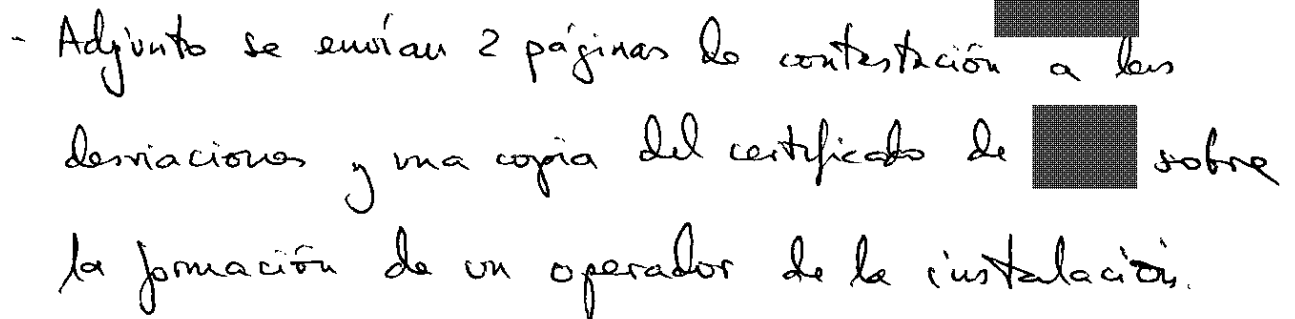 - Adjunto se envían 2 páginas de contestación a las
desviaciones y una copia del certificado de sobre
la formación de un operador de la instalación.